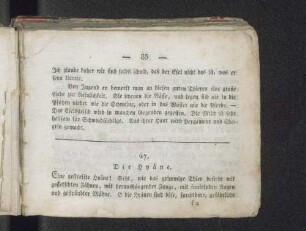 — 35 —
Ich glaube daher wir sind selbst schuld, daß der Esel nicht das ist, was er
seyn könnte.
Von Jugend an bemerkt man an diesen guten Thieren eine große
Liebe zur Reinlichkeit. Sie scheuen die Nässe, und legen sich nie in die
Pfützen nieder wie die Schweine, oder in das Wasser wie die Pferde. —
Das Eselfleisch wird in manchen Gegenden gegessen. Die Milch ist sehr
heilsam für Schwindsüchtige. Aus ihrer Haut wird Pergament und Cha-
grin gemacht.
67.
Die Hyäne.
Eine entsetzliche Hyäne! Seht, wie das grimmige Thier dasteht mit
gefletschten Zähnen, mit heraushängender Zunge, mit funkelnden Augen
und gesträubter Mähne. O die Hyänen sind böse, furchtbare, gefährliche